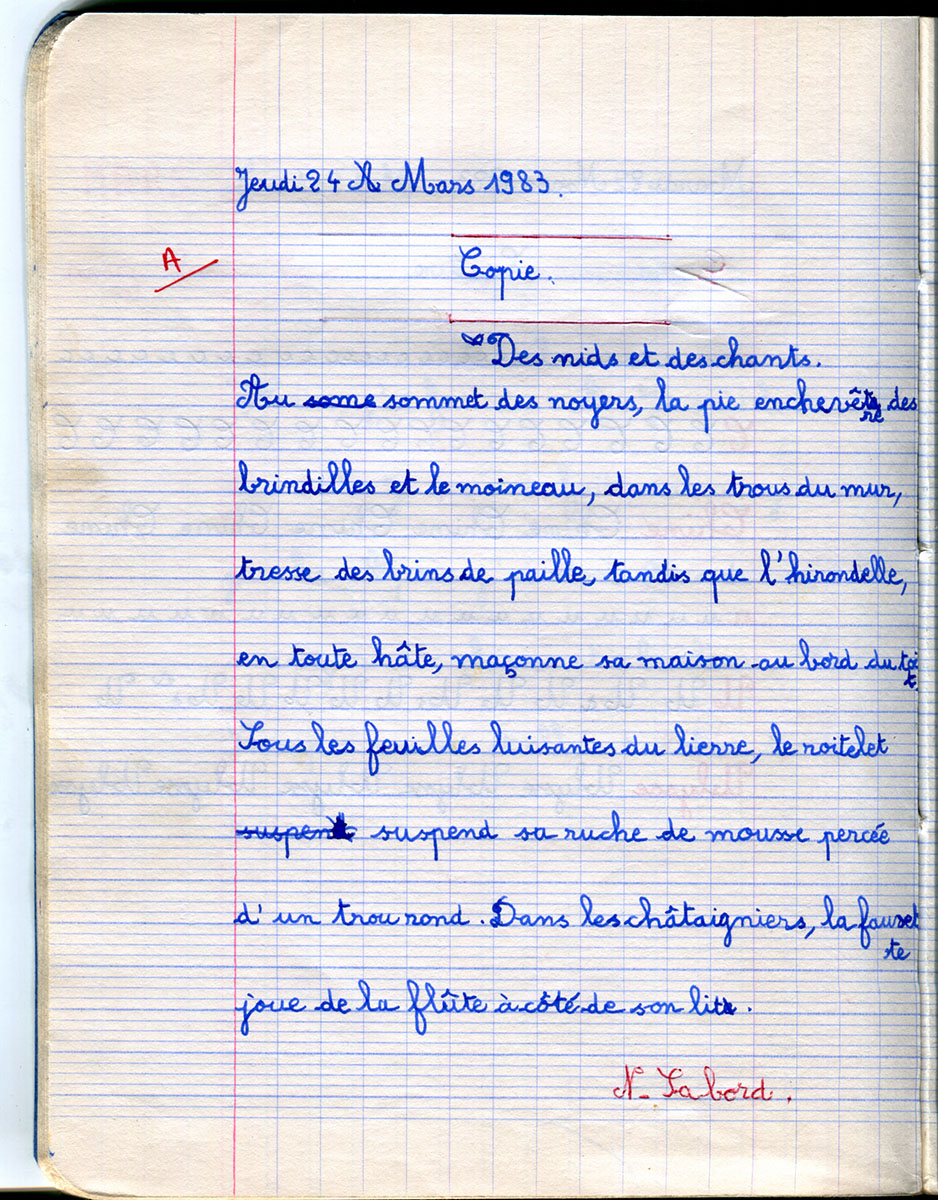 Jeudi 24 Mars 1983.
A
Copie.
Des nids et des chants.
Au some sommet des noyers, la pie enchevêtre des
brindilles et le moineau, dans les trous du mur,
tresse des brins de paille, tandis que l'hirondelle,
en toute hâte, maçonne sa maison au bord du toit.
Sous les feuilles luisantes du lierre, le roitelet
suspend suspend sa ruche de mousse percée
d'un trou rond. Dans les châtaigniers, la fauvet
te
joue de la flûte à côté de son lit.
N. Sabord.